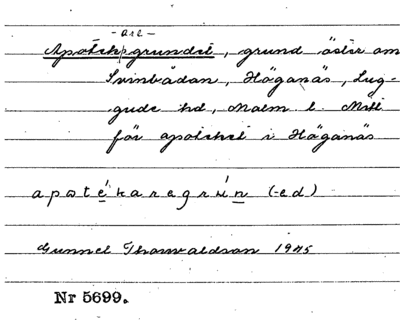 - are -
Apotek/grundet, grund öster om
Svinbådan, Höganäs, Lug-
gude hd, Malm. l. Mött
för apoteket i Höganäs
apotékaregrún (-ed)
Gunnel Thorwaldson 1945
Nr 5699.